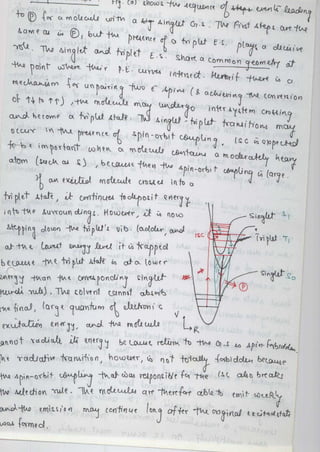 Fig. (a) shows the sequence of events leading
to Ⓟ for a molecule with a singlet G.S. The first steps are the
same as in Ⓕ, but the presence of a triplet E.S. plays a decisive
role. The singlet and triplet E.S. share a common geometry at
the point where their P.E. curves intersect. Hence if there is a
mechanism for unpairing two e⁻ spins (& achieving the conversion
of ↑↓ to ↑↑), the molecule may undergo intersystem crossing
and become a triplet state. The singlet-triplet transitions may
occur in the presence of spin-orbit coupling. ISC is expected
to be important when a molecule contains a moderately heavy
atom (such as S), because then the spin-orbit coupling is large.
If an excited molecule crosses into a
triplet state, it continues to deposit energy
into the surroundings. However, it is now
stepping down the triplet's vib. ladder, and
at the lowest energy level it is trapped
because the triplet state is at a lower
energy than the corresponding singlet
(Hund's rule). The solvent cannot absorb
the final, large quantum of electronic
excitation energy, and the molecule
cannot radiate its energy because return to the G.S. is spin-forbidden.
The radiative transition, however, is not totally forbidden because
the spin-orbit coupling that was responsible for the ISC also breaks
the selection rule. The molecules are therefore able to emit weakly
and the emission may continue long after the original excited state
was formed.
Singlet S₁
ISC
Triplet T₁
Singlet S₀
Ⓟ
V
R